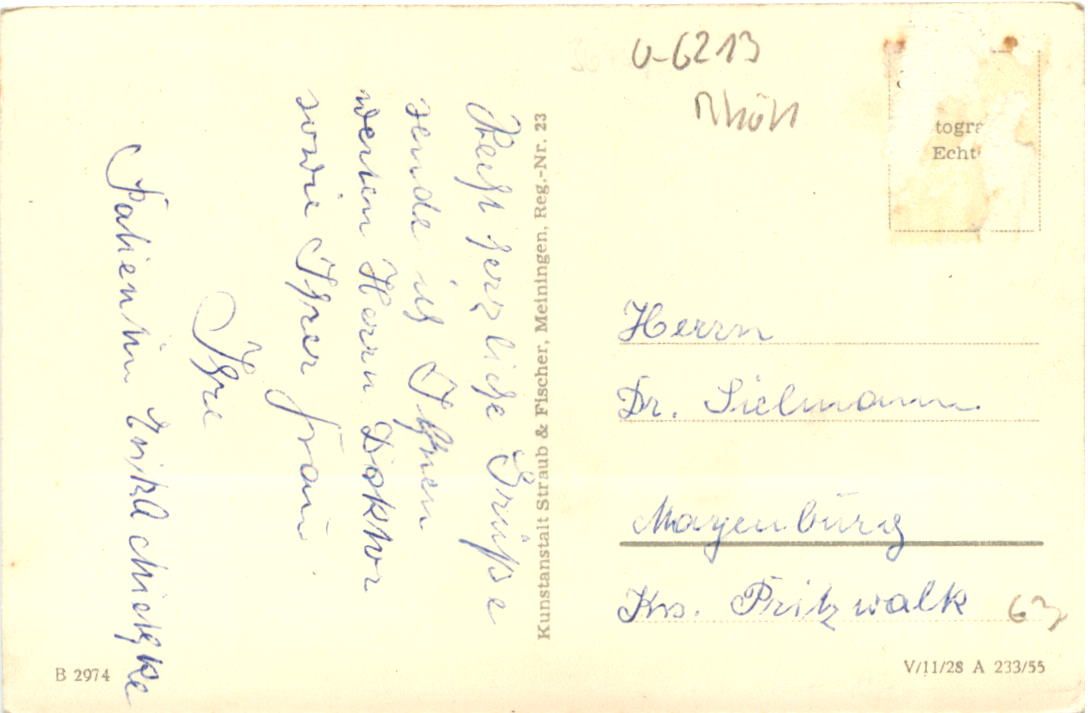 Recht herzliche Grüße
sende ich Ihnen
werten Herrn Doktor
sowie Ihrer Frau
Ihre
Patientin Erika
Kunstanstalt Straub & Fischer, Meiningen, Reg.-Nr. 23
U-6213
Rhön
togra
Echt
Herrn
Dr. Sielmann
Meyenburg
Krs. Pritzwalk
63
B 2974
V/11/28 A 233/55